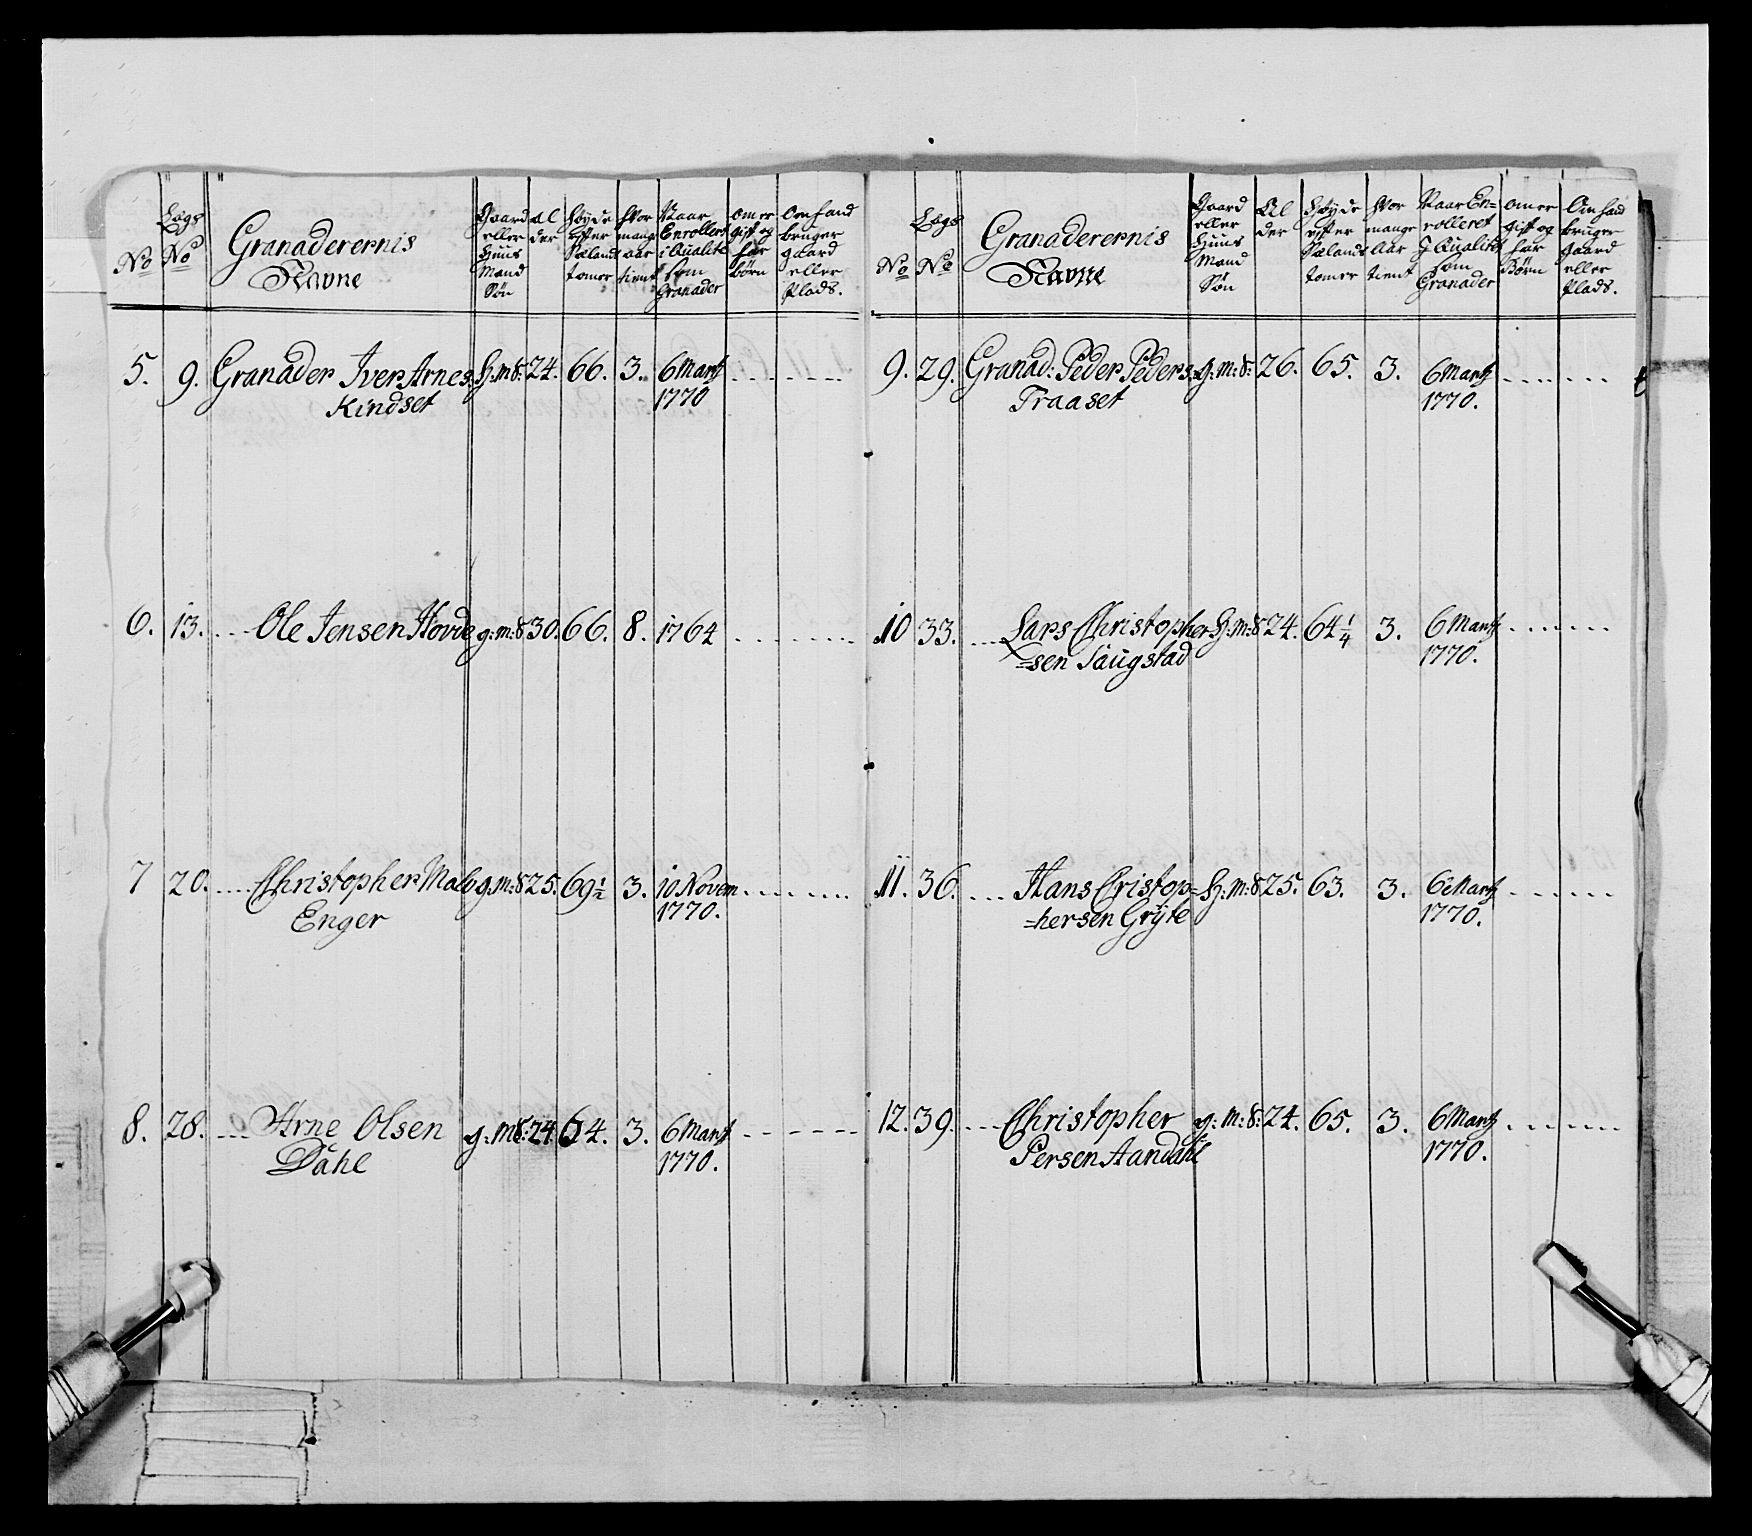 No
Lægs No
Granaderernis Navne
Gaard eller Huus Mand Søn
al der
Høyde efter Sælands tomer
Hvor mange aar tient
Naar Enrollert i Qualite som Granader
om er gift og har børn
Om hand bruger gaard eller Plads.
5. 9. Granader Iver Arnes. H.m:S: 24. 66. 3. 6 Martz
Kindset 1770
6. 13. Ole Jensen Hovde g:m:S 30. 66. 8. 1764
7 20. Christopher Malv g.m:S 25. 69½ 3. 10 Novem
Enger 1770.
8. 28. Arne Olsen g:m:S: 24 64. 3. 6 Martz
Dahl 1770.
No
Lægs No
Granaderernis Navne
Gaard eller Huus Mand Søn
Al der
Høyde efter Sælands tomer
Hvor mange Aar tient
Naar En=rolleret I Qualitet som Granader
om er gift og har Børn
Om hand bruger gaard eller Plads.
9. 29. Granad: Peder Peders. g:m:S: 26. 65. 3. 6 Martz
Traaset 1770.
10 33. Lars Christopher H.m:S 24. 64¼ 3. 6 Martz
=sen Saugstad 1770.
11. 36. Hans Cristop= H.m:S 25. 63. 3. 6 Martz
=hersen Gryte 1770.
12. 39. Christopher g:m:S: 24. 65. 3. 6 Martz
Persen Aandahl 1770.